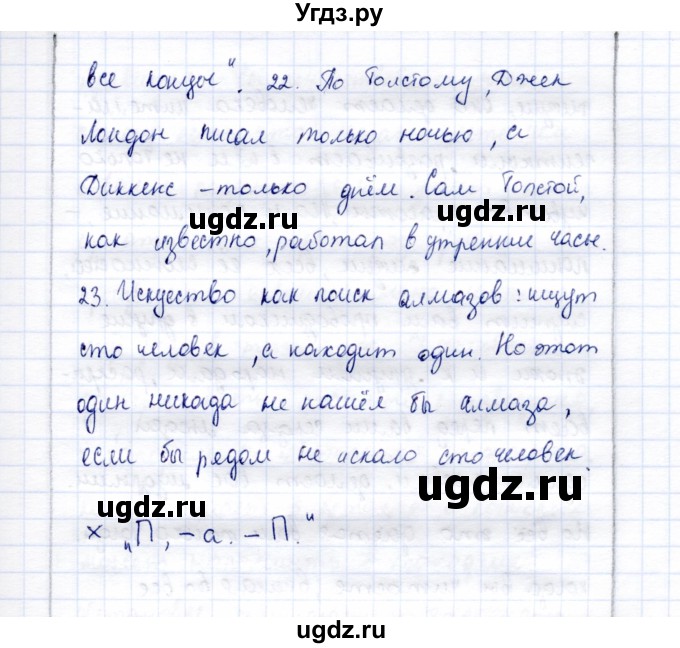 Угдз.ру
все концы". 22. По Толстому, Джек
Лондон писал только ночью, а
Диккенс – только днём. Сам Толстой,
ugdz.ru ugdz.ru
как известно, работал в утренние часы.
23. Искуество как поиск алмазов: ищут
сто человек, а находит один. Но этот
один никада не нашёл бы алмаза,
если бы рядом не искало сто человек.
ugdz.ru ugdz.ru
× „П, – а. – П."
ugdz.ru